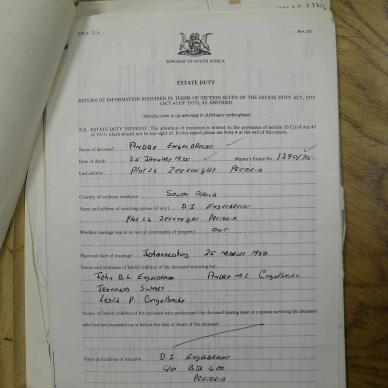 Rev. 263
REPUBLIC OF SOUTH AFRICA
ESTATE DUTY
RETURN OF INFORMATION REQUIRED IN TERMS OF SECTION SEVEN OF THE ESTATE DUTY ACT, 1955
(ACT 45 OF 1955), AS AMENDED
(Hierdie vorm is op aanvraag in Afrikaans verkrygbaar)
N.B. ESTATE DUTY INTEREST: The attention of executors is invited to the provisions of section 10 (2) of Act 45
of 1955, which should not be lost sight of. In this regard please see Note 4 at the end of this return.
Name of deceased ANDRE ENGELBRECHT
Date of death 25 JANUARY 1975 Master's Estate No. 1390/75
Last address Plot 24 ZEEKOEGAT PRETORIA
Country of ordinary residence SOUTH AFRICA
Name and address of surviving spouse (if any) D.I. ENGELBRECHT
Plot 24 ZEEKOEGAT PRETORIA
Whether marriage was in or out of community of property OUT
Place and date of marriage Johannesburg 25 MARCH
Names and addresses of lawful children of the deceased surviving him
John B.G. Engelbrecht Andre M.L. Engelbrecht
Jeannette
Leslie P. Engelbrecht
Names of lawful children of the deceased who predeceased the deceased leaving issue or a spouse surviving the deceased
who had not remarried on or before the date of death of the deceased
Name and address of executor D.I ENGELBRECHT
PRETORIA